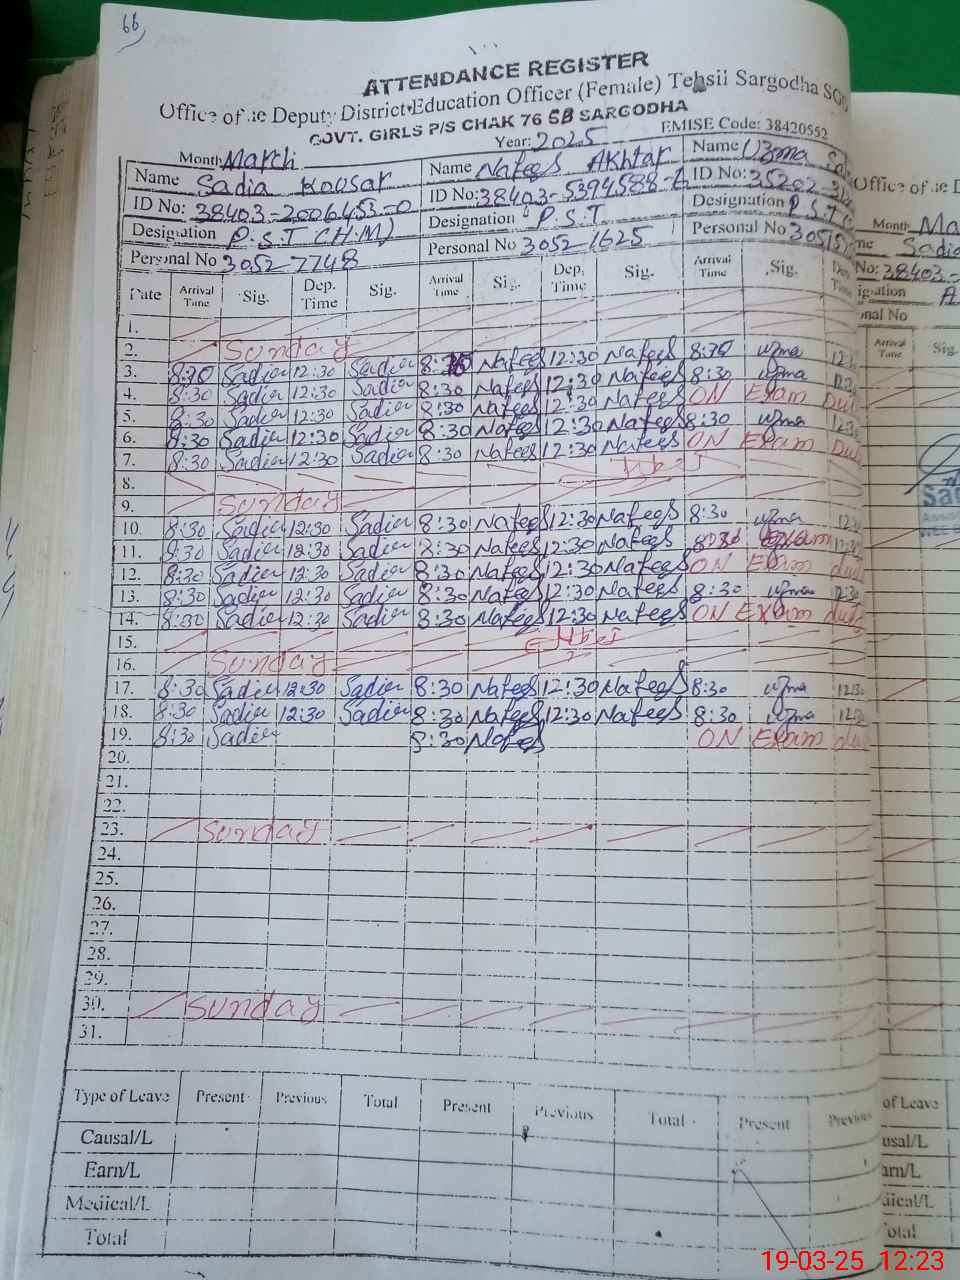 66
ATTENDANCE REGISTER
Office of the Deputy District Education Officer (Female) Tehsil Sargodha SGD
GOVT. GIRLS P/S CHAK 76 SB SARGODHA
Month March Year: 2025 EMISE Code: 38420552
Name Sadia Kousar Name Nafees Akhtar Name Uzma
ID No: 38403-2006453-0 ID No: 38403-5394588- ID No: 35202-
Designation P.S.T (H.M) Designation P.S.T Designation P.S.T
Personal No 30527748 Personal No 30521625 Personal No 30515
Date Arrival Time Sig. Dep. Time Sig. Arrival Time Sig. Dep. Time Sig. Arrival Time Sig. Dep. Time
1.
2. Sunday
3. 8:30 Sadia 12:30 Sadia Nafees 12:30 Nafees 8:30 uzma 12:3
4. 8:30 Sadia 12:30 Sadia 8:30 Nafees 12:30 Nafees 8:30 uzma 12:30
5. 8:30 Sadia 12:30 Sadia 8:30 Nafees 12:30 Nafees ON Exam Dut
6. 8:30 Sadia 12:30 Sadia 8:30 Nafees 12:30 Nafees 8:30 uzma 12:30
7. 8:30 Sadia 12:30 Sadia 8:30 Nafees 12:30 Nafees ON Exam Dut
8.
9. Sunday
10. 8:30 Sadia 12:30 Sadia 8:30 Nafees 12:30 Nafees 8:30 uzma 12:30
11. 8:30 Sadia 12:30 Sadia 8:30 Nafees 12:30 Nafees 8:30 12:30
12. 8:30 Sadia 12:30 Sadia 8:30 Nafees 12:30 Nafees ON Exam dut
13. 8:30 Sadia 12:30 Sadia 8:30 Nafees 12:30 Nafees 8:30 uzma 12:30
14. 8:30 Sadia 12:30 Sadia 8:30 Nafees 12:30 Nafees ON Exam dut
15.
16. Sunday
17. 8:30 Sadia 12:30 Sadia 8:30 Nafees 12:30 Nafees 8:30 uzma 12:30
18. 8:30 Sadia 12:30 Sadia 8:30 Nafees 12:30 Nafees 8:30 uzma 12:30
19. 8:30 Sadia 8:30 Nafees ON Exam dut
20.
21.
22.
23. Sunday
24.
25.
26.
27.
28.
29.
30. Sunday
31.
Type of Leave Present Previous Total Present Previous Total Present Previous
Causal/L
Earn/L
Medical/L
Total
Office of
Month Ma
Sadia
No: 38403-
Arrival Time Sig.
of Leave
19-03-25 12:23